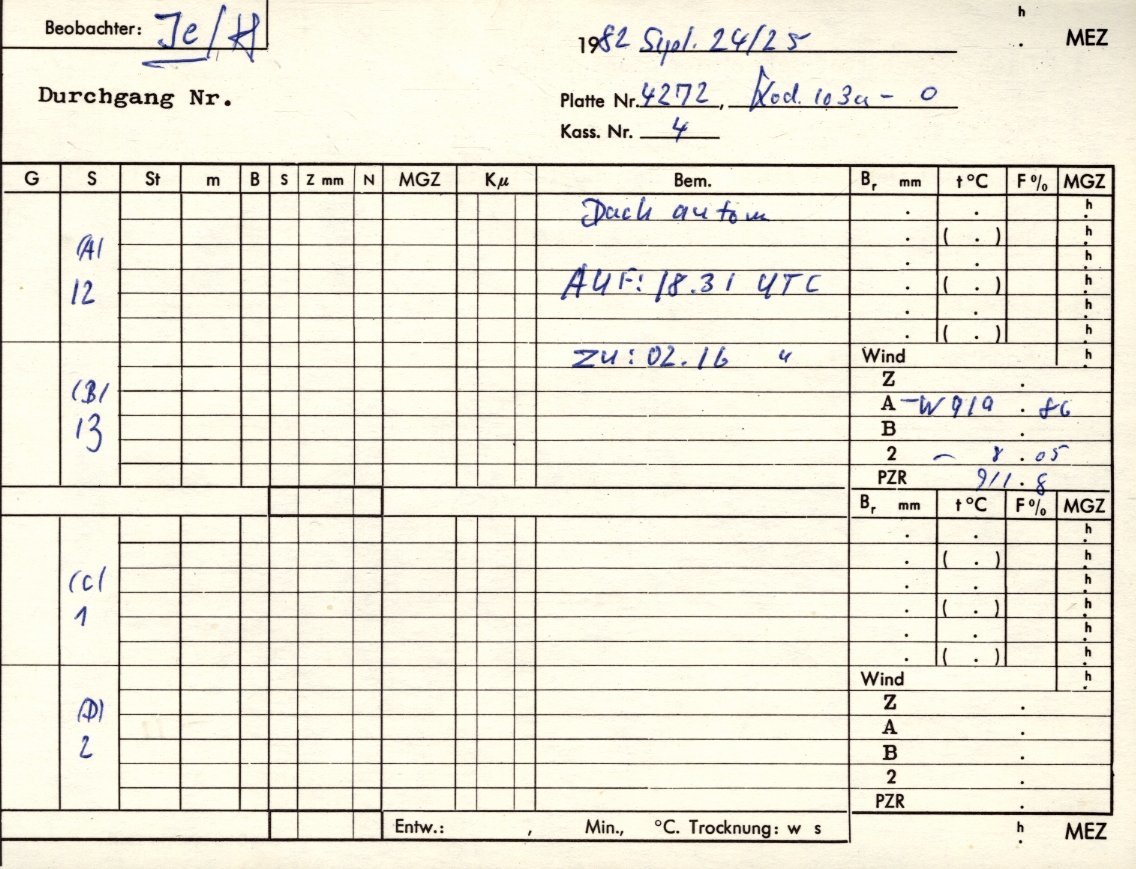 Beobachter: Je/H
h
1982 Sept. 24/25 . MEZ
Durchgang Nr.
Platte Nr. 4272, Kod. 103a-O
Kass. Nr. 4
G S St m B S Z mm N MGZ Kμ Bem. Br mm t °C F% MGZ
Dach autom . . h
(A) . ( . ) h
. . h
12 AUF: 18.31 UTC . ( . ) h
. . h
. ( . ) h
zu: 02.16 " Wind h
Z .
(B) A -W 919 . 86
13 B .
2 - 8 . 05
PZR 911 . 8
Br mm t °C F% MGZ
. . h
. ( . ) h
(C) . . h
1 . ( . ) h
. . h
. ( . ) h
Wind h
Z .
(D) A .
2 B .
2 .
PZR .
Entw.: , Min., °C. Trocknung: w s h . MEZ